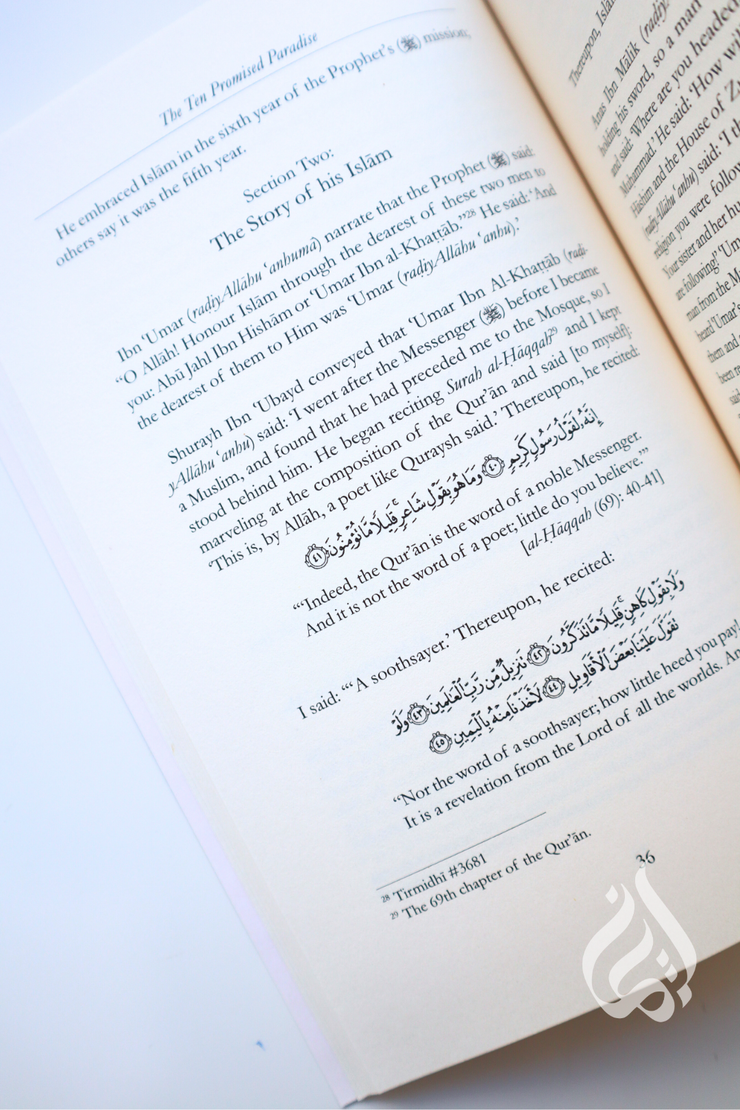 The Ten Promised Paradise
He embraced Islām in the sixth year of the Prophet's (ﷺ) mission;
others say it was the fifth year.
Section Two:
The Story of his Islām
Ibn ‘Umar (raḍiyAllāhu ‘anhumā) narrate that the Prophet (ﷺ) said:
“O Allāh! Honour Islām through the dearest of these two men to
you: Abū Jahl Ibn Hishām or ‘Umar Ibn al-Khaṭṭāb.”²⁸ He said: ‘And
the dearest of them to Him was ‘Umar (raḍiyAllāhu ‘anhu).’
Shurayh Ibn ‘Ubayd conveyed that ‘Umar Ibn Al-Khaṭṭāb (raḍi-
yAllāhu ‘anhu) said: ‘I went after the Messenger (ﷺ) before I became
a Muslim, and found that he had preceded me to the Mosque, so I
stood behind him. He began reciting Surah al-Ḥāqqah²⁹ and I kept
marveling at the composition of the Qur’ān and said [to myself]:
‘This is, by Allāh, a poet like Quraysh said.’ Thereupon, he recited:
إِنَّهُ لَقَوْلُ رَسُولٍ كَرِيمٍ ٤٠ وَمَا هُوَ بِقَوْلِ شَاعِرٍ قَلِيلًا مَّا تُؤْمِنُونَ ٤١
“‘Indeed, the Qur’ān is the word of a noble Messenger.
And it is not the word of a poet; little do you believe.”’
[al-Ḥāqqah (69): 40-41]
I said: “‘A soothsayer.’ Thereupon, he recited:
وَلَا بِقَوْلِ كَاهِنٍ قَلِيلًا مَّا تَذَكَّرُونَ ٤٢ تَنزِيلٌ مِّن رَّبِّ الْعَالَمِينَ ٤٣ وَلَوْ
تَقَوَّلَ عَلَيْنَا بَعْضَ الْأَقَاوِيلِ ٤٤ لَأَخَذْنَا مِنْهُ بِالْيَمِينِ ٤٥
“Nor the word of a soothsayer; how little heed you pay!
It is a revelation from the Lord of all the worlds. An
²⁸ Tirmidhī #3681
²⁹ The 69th chapter of the Qur’ān.
36
Thereupon, Islā
Anas Ibn Mālik (raḍiy
holding his sword, so a man
and said: ‘Where are you headed
Muhammad.’ He said: ‘How will
Hishim and the House of Z
(raḍiyAllāhu ‘anhu) said: ‘I th
religion you were follow
Your sister and her hu
are following!’ ‘Um
man from the M
heard ‘Umar’s
them and
been re
said